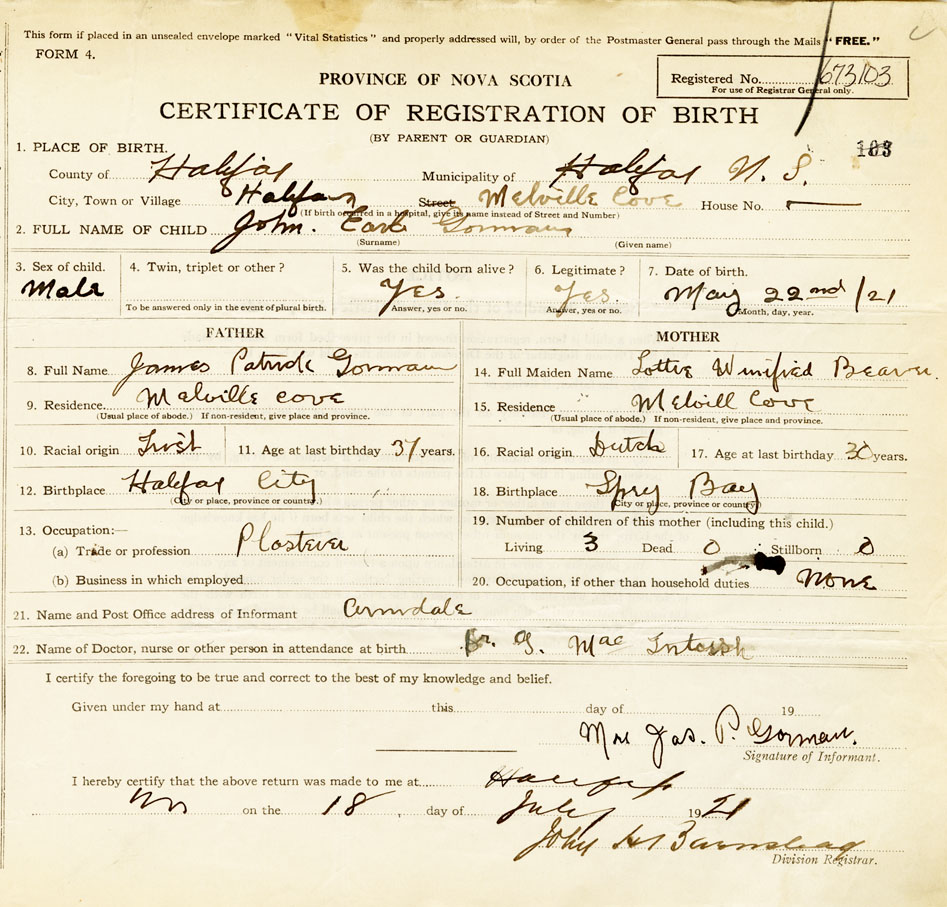 This form if placed in an unsealed envelope marked "Vital Statistics" and properly addressed will, by order of the Postmaster General pass through the Mails "FREE."
FORM 4.
PROVINCE OF NOVA SCOTIA
Registered No. 673103
For use of Registrar General only.
CERTIFICATE OF REGISTRATION OF BIRTH
(BY PARENT OR GUARDIAN)
103
1. PLACE OF BIRTH.
County of Halifax Municipality of Halifax N. S.
City, Town or Village Halifax Street Melville Cove House No. —
(If birth occurred in a hospital, give its name instead of Street and Number)
2. FULL NAME OF CHILD John. Earl Gorman
(Surname) (Given name)
3. Sex of child. 4. Twin, triplet or other? 5. Was the child born alive? 6. Legitimate? 7. Date of birth.
Male Yes. Yes. May 22nd /21
To be answered only in the event of plural birth. Answer, yes or no. Answer, yes or no. Month, day, year.
FATHER MOTHER
8. Full Name James Patrick Gorman 14. Full Maiden Name Lottie Winifred Beaver.
9. Residence Melville Cove 15. Residence Melvill Cove
(Usual place of abode.) If non-resident, give place and province. (Usual place of abode.) If non-resident, give place and province.
10. Racial origin Irish 11. Age at last birthday 37 years. 16. Racial origin Dutch 17. Age at last birthday 30 years.
12. Birthplace Halifax City 18. Birthplace Spry Bay
(City or place, province or country.) (City or place, province or country)
13. Occupation:— 19. Number of children of this mother (including this child.)
(a) Trade or profession Plasterer Living 3 Dead 0 Stillborn 0
(b) Business in which employed 20. Occupation, if other than household duties None
21. Name and Post Office address of Informant Armdale
22. Name of Doctor, nurse or other person in attendance at birth Dr. G. Mac Intosh
I certify the foregoing to be true and correct to the best of my knowledge and belief.
Given under my hand at this day of 19
Mrs Jas. P. Gorman.
Signature of Informant.
I hereby certify that the above return was made to me at Halifax
NS on the 18 day of July 1921
John H Barnstead
Division Registrar.